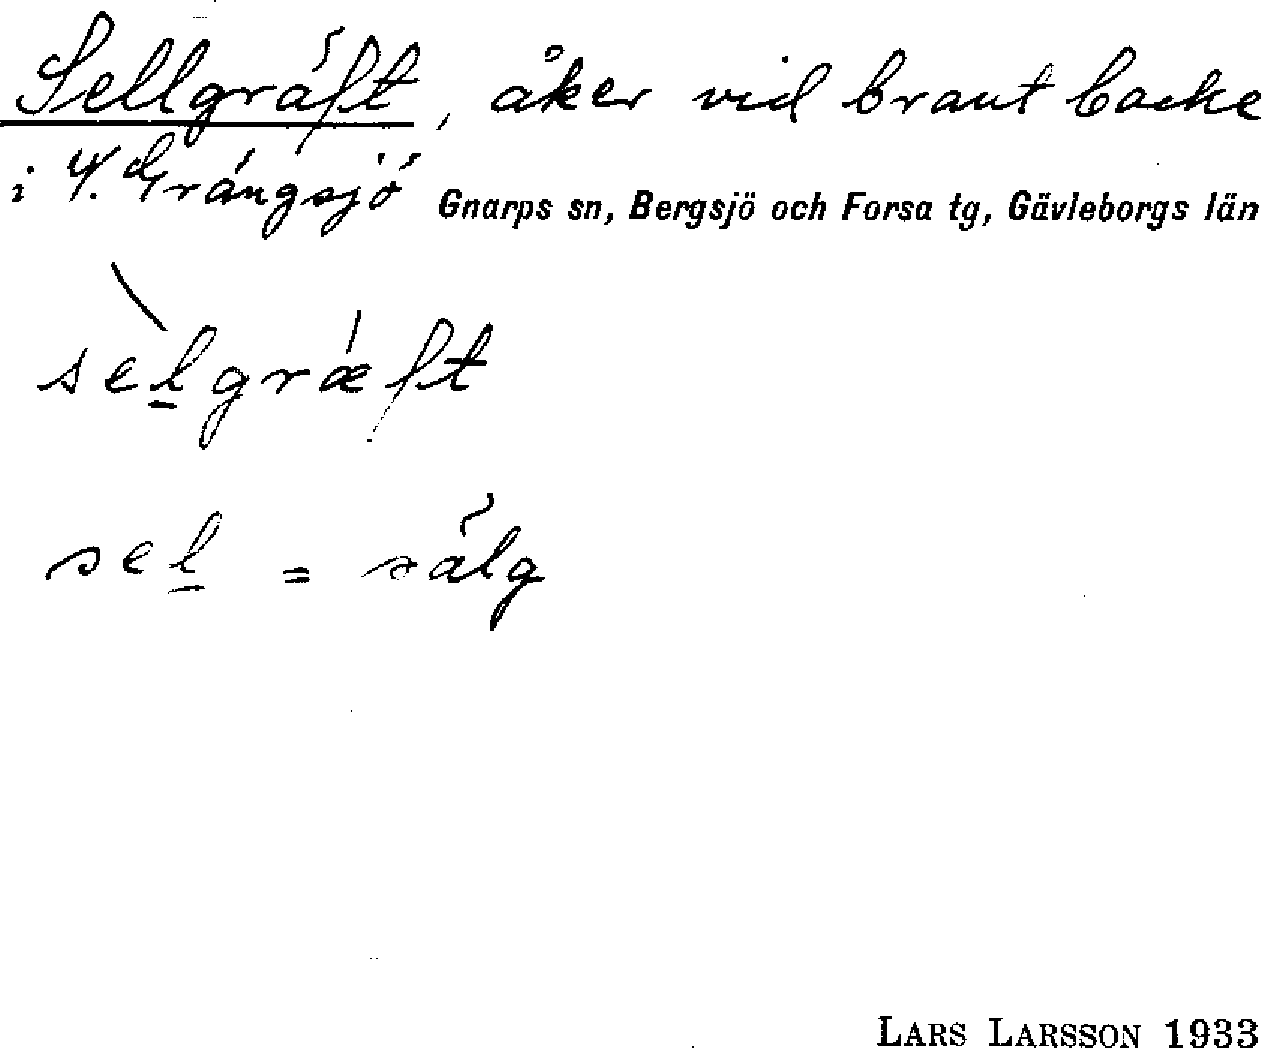 Sellgräft, åker vid brant backe
i Y. Grängsjö Gnarps sn, Bergsjö och Forsa tg, Gävleborgs län
sèl̲grǽft
sel̲ = sälg
LARS LARSSON 1933